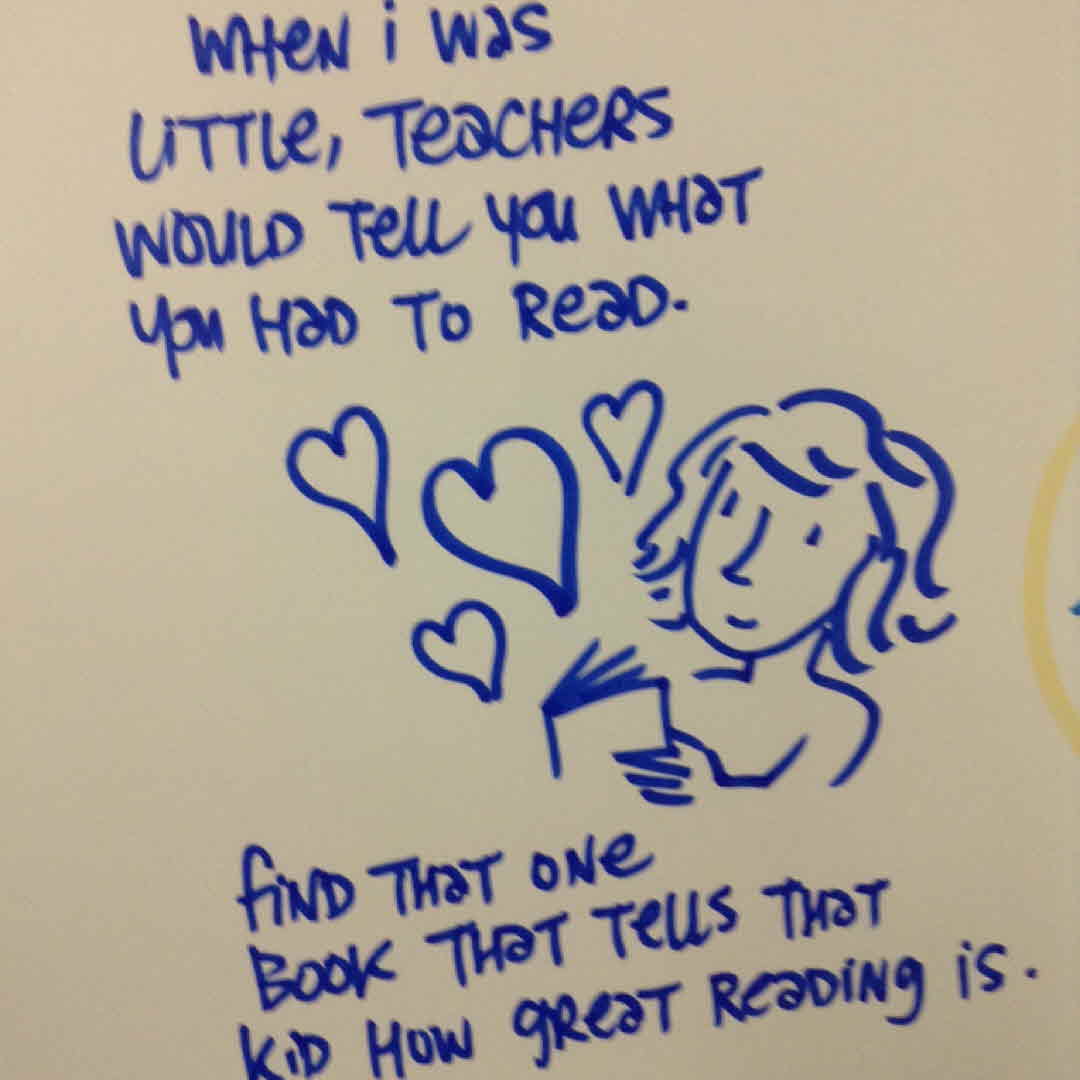 WHEN i WaS
LiTTLe, TeacHeRS
WOULD Tell you WHaT
you HaD To ReaD.
fiND THaT oNe
Book THaT Tells THaT
KiD HoW gReaT ReaDiNg iS.